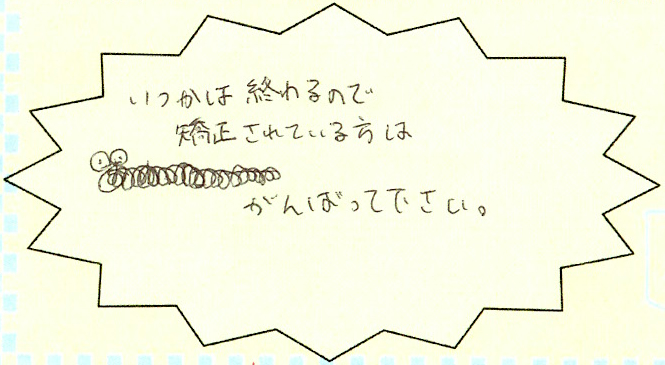 いつかは終わるので
矯正されている方は
がんばって下さい。